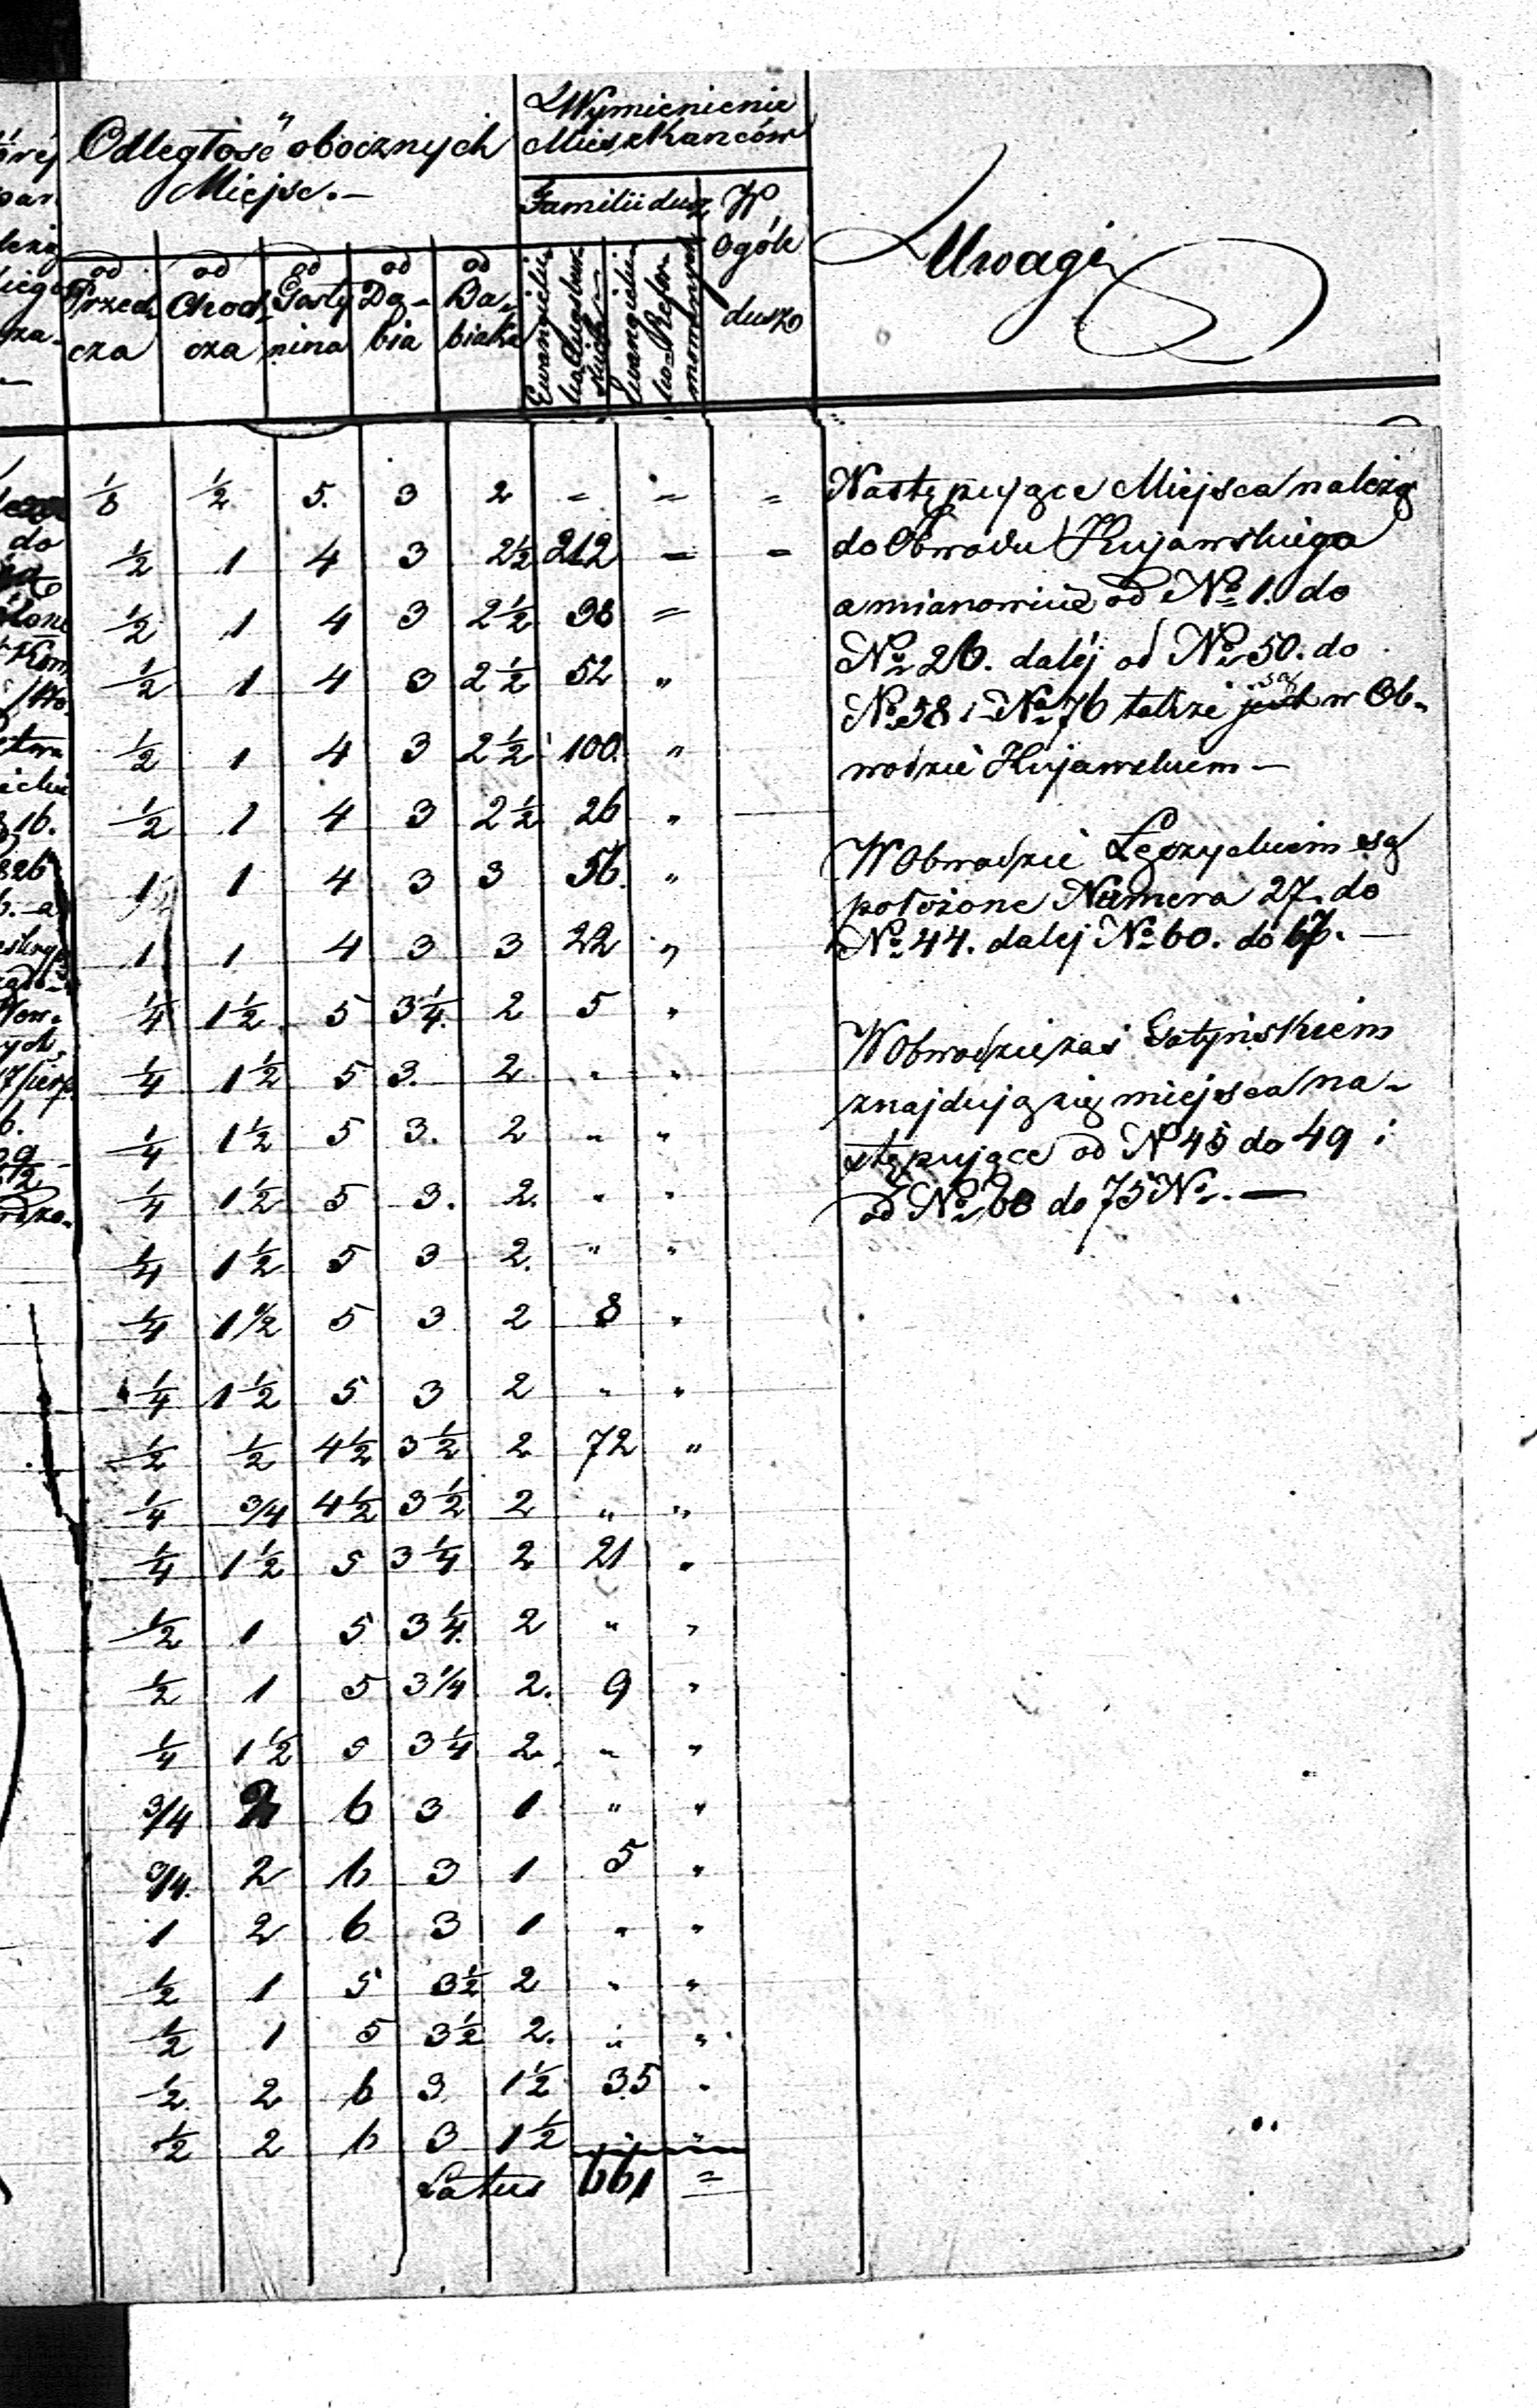 Odległość obocznych
Miejsc.—
Wymienienie
Mieszkańców
Familii dusz
W
ogóle
dusz
Uwagi
od Przedcza
od Chodcza
od Gostynina
od Dąbia
od Babiaka
1/8 1/2 5. 3 2 = = =
1/2 1 4 3 2 1/2 212 = =
1/2 1 4 3 2 1/2 38 =
1/2 1 4 3 2 1/2 52 "
1/2 1 4 3 2 1/2 100. "
1/2 1 4 3 2 1/2 26 "
1 1 4 3 3 56. "
1 1 4 3 3 22 "
1/4 1 1/2 5 3 1/4. 2 5 "
1/4 1 1/2 5 3. 2 " "
1/4 1 1/2 5 3. 2 " "
1/4 1 1/2 5 3. 2. " "
1/4 1 1/2 5 3 2. " "
1/4 1 1/2 5 3 2 8 "
1/4 1 1/2 5 3 2 " "
1/2 1/2 4 1/2 3 1/2 2 72 "
1/4 3/4 4 1/2 3 1/2 2 " "
1/4 1 1/2 5 3 1/4 2 21 "
1/2 1 5 3 1/4. 2 " "
1/2 1 5 3 1/4 2. 9 "
1/4 1 1/2 5 3 1/4 2. " "
3/4 2 6 3 1 " "
3/4. 2 6 3 1 5 "
1 2 6 3 1 " "
1/2 1 5 3 1/2 2 " "
1/2 1 5 3 1/2 2. " "
1/2 2 6 3 1 1/2 35 "
1/2 2 6 3 1 1/2 " "
Latus 661 =
Następujące Miejsca należą
do Obwodu Kujawskiego
a mianowicie od No 1. do
No 26. daléj od No 50. do
No 58 i No 76 także są w Ob-
wodzie Kujawskiem —
W Obwodzie Łęczyckiem są
położone Numera 27. do
No 44. dalej No 60. do 67. —
W Obwodzie zaś Gostyńskiem
znajdują się miejsca na-
stępujące od N 45 do 49 i
od No 68 do 75 No. —